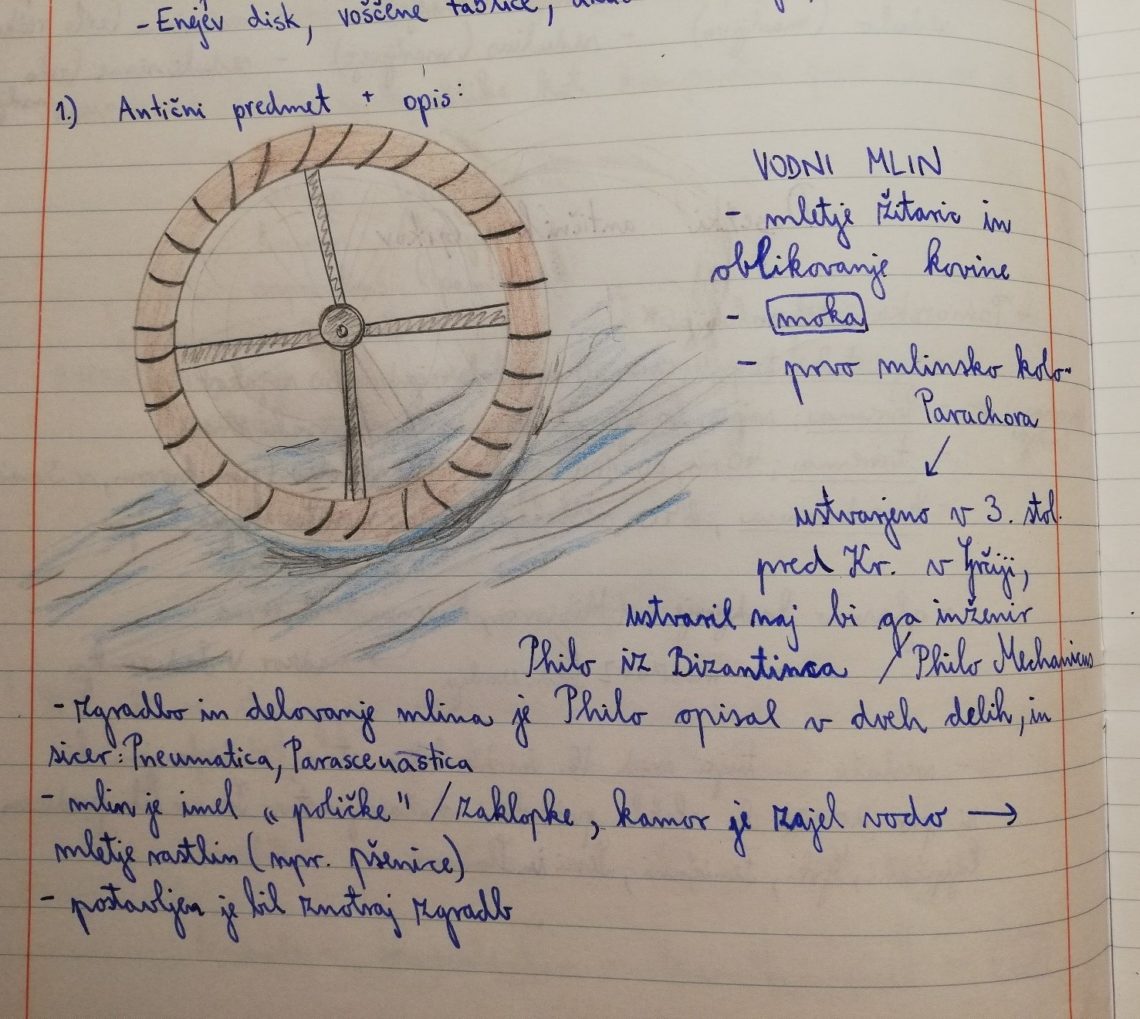 - Enejev disk, voščene tablice,
1.) Antični predmet + opis:
VODNI MLIN
- mletje žitaric in
oblikovanje kovine
- moka
- prvo mlinsko kolo-
Parachora
↙
ustvarjeno v 3. stol.
pred Kr. v Grčiji,
ustvaril naj bi ga inženir
Philo iz Bizantinca / Philo Mechanicus
- zgradbo in delovanje mlina je Philo opisal v dveh delih, in
sicer: Pneumatica, Parasceuastica
- mlin je imel „poličke" / zaklopke, kamor je zajel vodo →
mletje rastlin (npr. pšenice)
- postavljen je bil znotraj zgradb